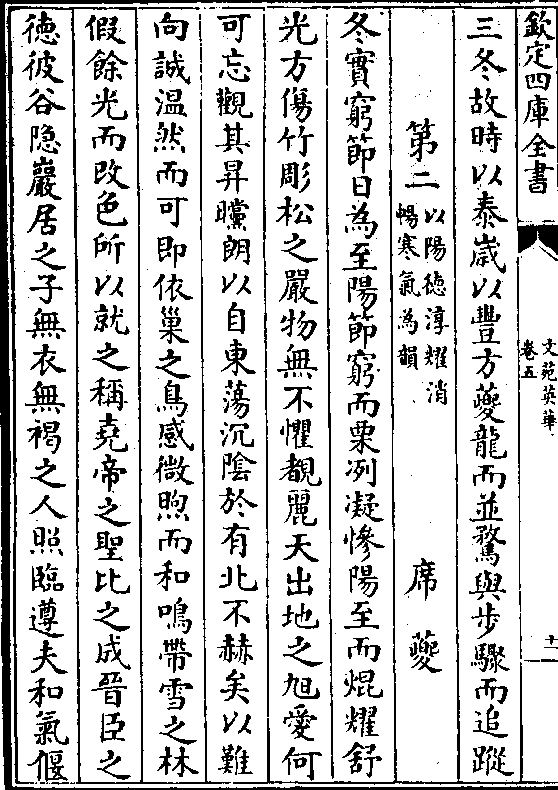 欽定四庫全書
文苑英華
卷五
十一
三冬故時以泰歲以豐方夔龍而並騖與步驟而追蹤
第二 以陽德淳耀消暢寒氣為韻 席夔
冬實窮節日為至陽節窮而栗冽凝慘陽至而焜耀舒
光方傷竹彫松之嚴物無不懼覩麗天出地之旭愛何
可忘觀其昇曭朗以自東蕩沉陰於有北不赫矣以難
向誠温然而可即依巢之鳥感微煦而和鳴帶雪之林
假餘光而改色所以就之稱堯帝之聖比之成晉臣之
徳彼谷隐巖居之子無衣無褐之人照臨遵夫和氣偃